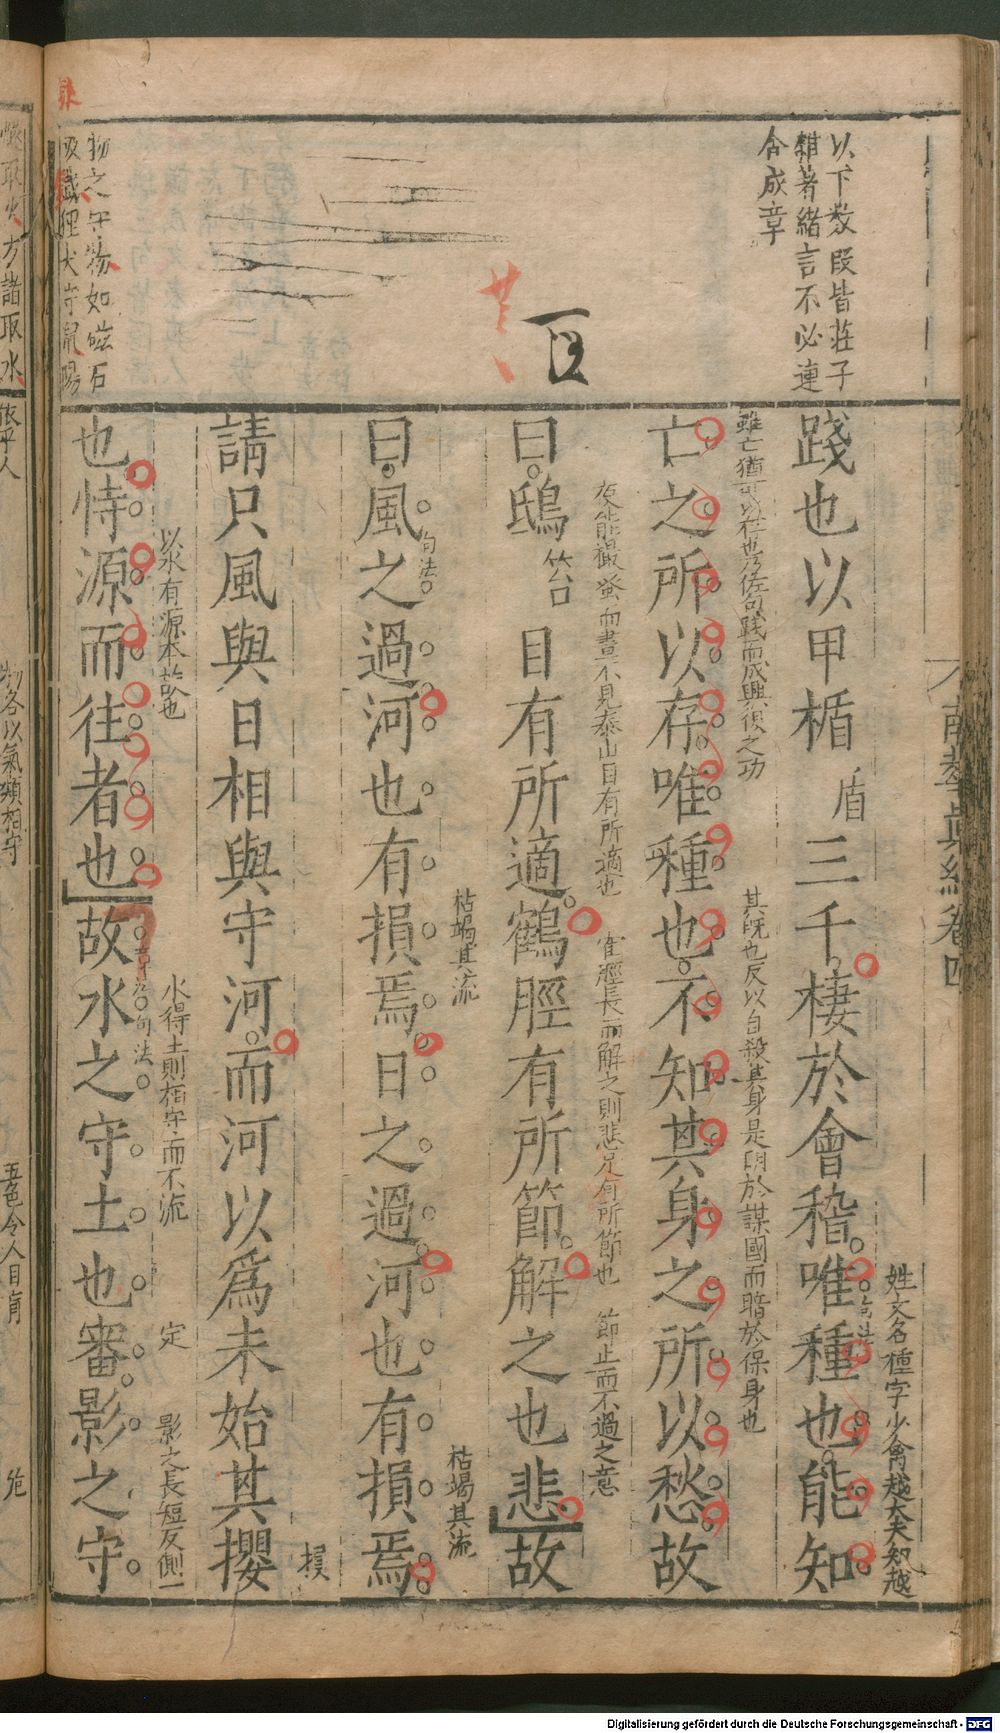 以下数段皆莊子
雜著緒言不必連
合成章
物之守物如磁石
吸鐵狸犬守鼠陽
南華眞經卷四
姓文名種字少禽越大夫知越
踐也以甲楯盾三千棲於會稽唯種也能知
句法
雖亡猶可以存也乃佐句踐而成興復之功
其旣也反以自殺其身是明於謀國而暗於保身也
亡之所以存唯種也不知其身之所以愁故
夜能撮蚤而晝不見泰山目有所適也
隺脛長而解之則悲足有所節也
節止而不過之意
曰鴟笞目有所適鶴脛有所節解之也悲故
句法
枯竭其流
枯竭其流
曰風之過河也有損焉日之過河也有損焉
損
請只風與日相與守河而河以爲未始其攖
以水有源本故也
水得土則相守而不流
定
影之長短反側一
也恃源而往者也故水之守土也審影之守
章法
句法
燧取火方諸取水
依乎人
物各以氣類相守
五色令人目盲
Digitalisierung gefördert durch die Deutsche Forschungsgemeinschaft - DFG